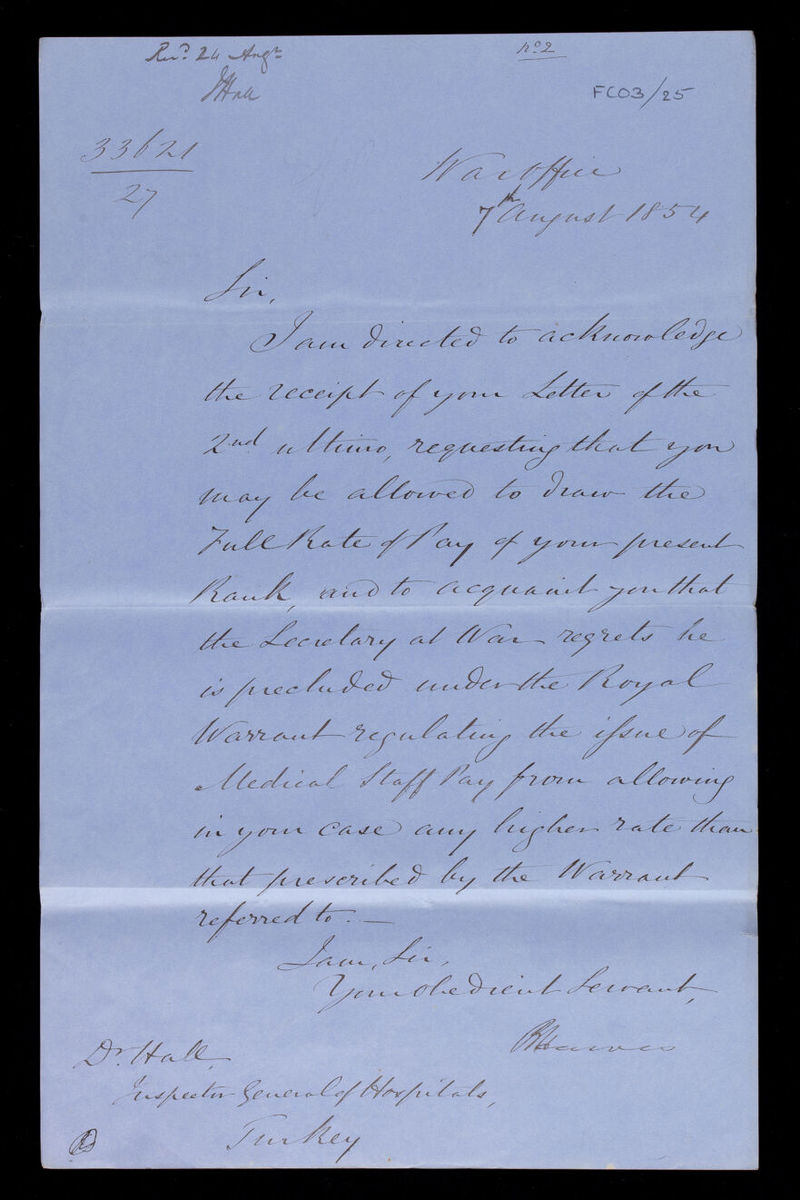 Recd. 24 Augt.
JHall
No 2
FCO3/25
33621
27
War Office
7th August 1854
Sir,
I am directed to acknowledge
the receipt of your Letter of the
2nd ultimo, requesting that you
may be allowed to draw the
Full Rate of Pay of your present
Rank, and to acquaint you that
the Secretary at War regrets he
is precluded under the Royal
Warrant regulating the issue of
Medical Staff Pay from allowing
in your case any higher rate than
that prescribed by the Warrant
referred to. —
I am, Sir,
Your obedient Servant,
Dr. Hall,
Inspector General of Hospitals,
Turkey